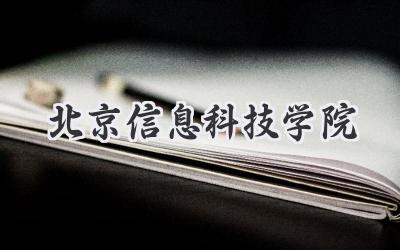 北京信息科技学院